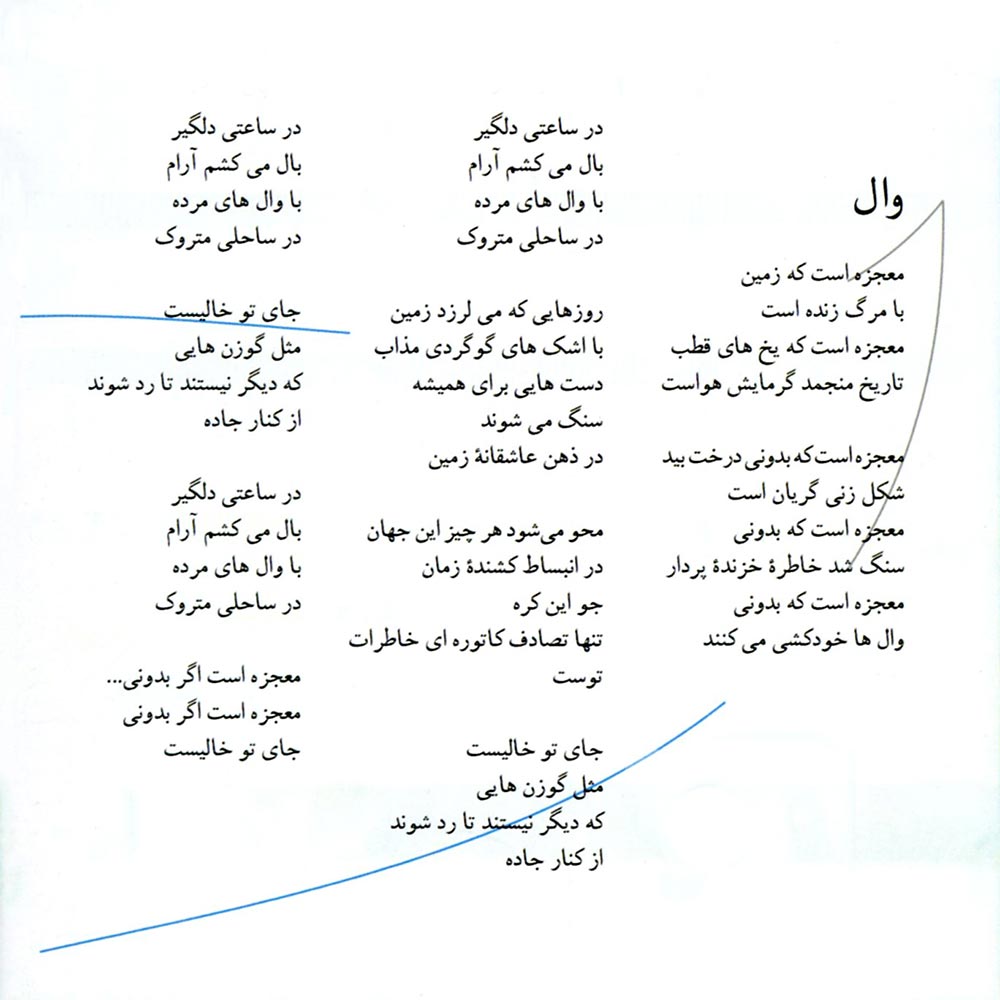 وال
معجزه است که زمین
با مرگ زنده است
معجزه است که یخ های قطب
تاریخ منجمد گرمایش هواست
معجزه است که بدونی درخت بید
شکل زنی گریان است
معجزه است که بدونی
سنگ شد خاطرۀ خزندۀ پردار
معجزه است که بدونی
وال ها خودکشی می کنند
در ساعتی دلگیر
بال می کشم آرام
با وال های مرده
در ساحلی متروک
روزهایی که می لرزد زمین
با اشک های گوگردی مذاب
دست هایی برای همیشه
سنگ می شوند
در ذهن عاشقانۀ زمین
محو می‌شود هر چیز این جهان
در انبساط کشندۀ زمان
جو این کره
تنها تصادف کاتوره ای خاطرات
توست
جای تو خالیست
مثل گوزن هایی
که دیگر نیستند تا رد شوند
از کنار جاده
در ساعتی دلگیر
بال می کشم آرام
با وال های مرده
در ساحلی متروک
جای تو خالیست
مثل گوزن هایی
که دیگر نیستند تا رد شوند
از کنار جاده
در ساعتی دلگیر
بال می کشم آرام
با وال های مرده
در ساحلی متروک
معجزه است اگر بدونی...
معجزه است اگر بدونی
جای تو خالیست